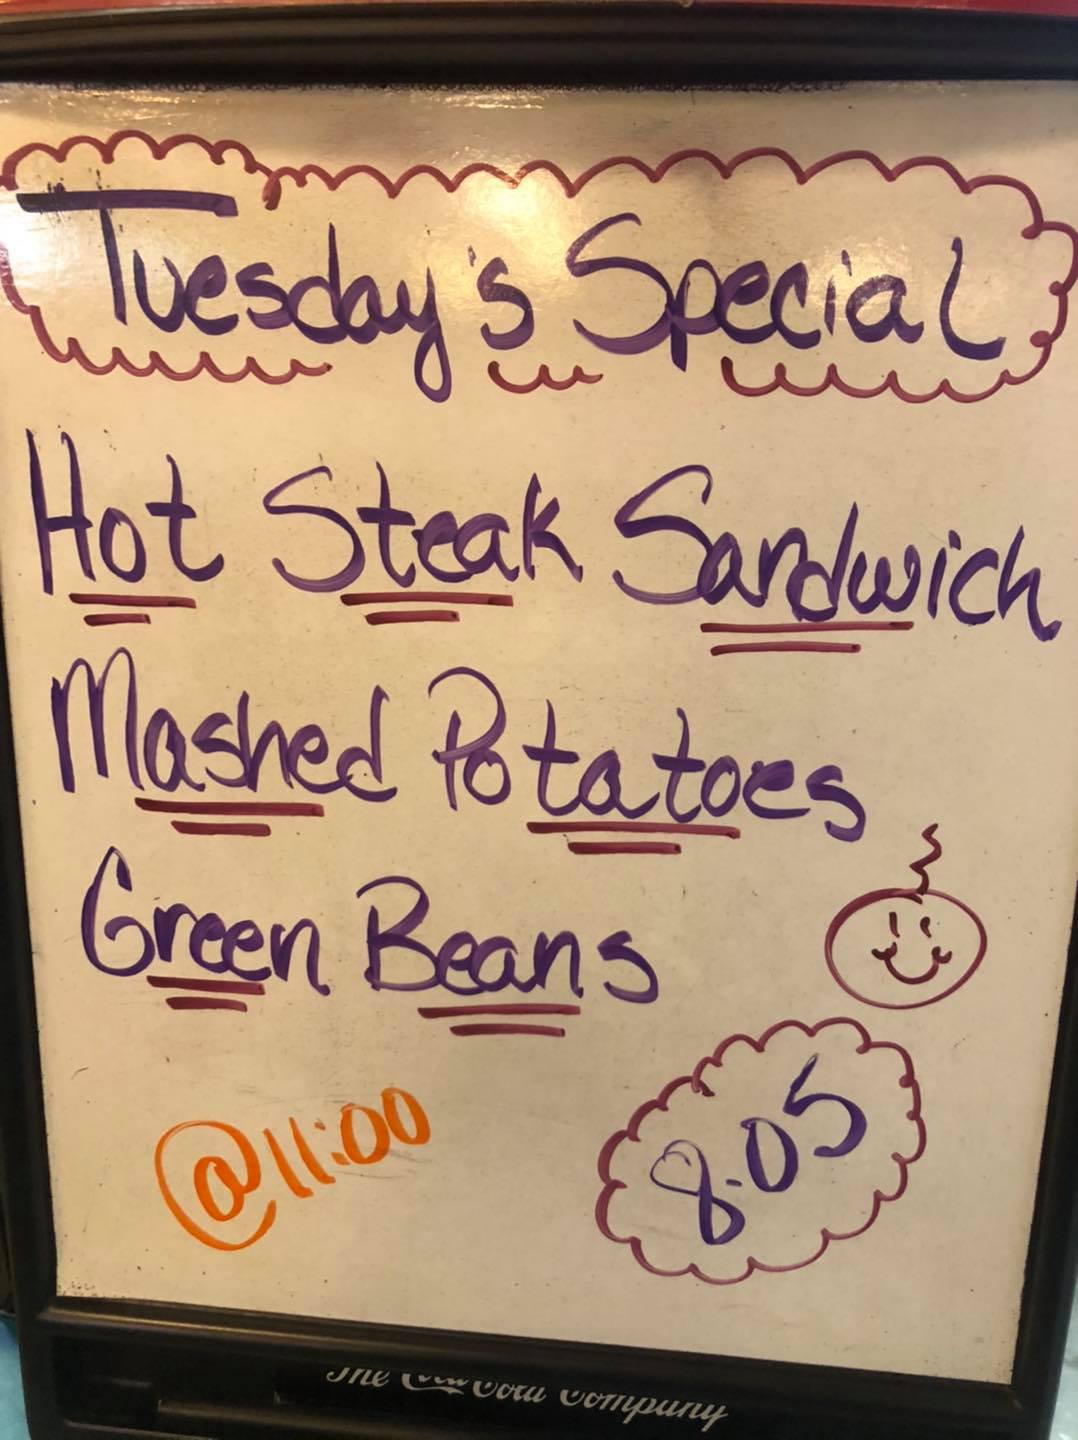 Tuesday's Special
Hot Steak Sandwich
Mashed Potatoes
Green Beans
@11:00
8.05
The Coca Cola Company